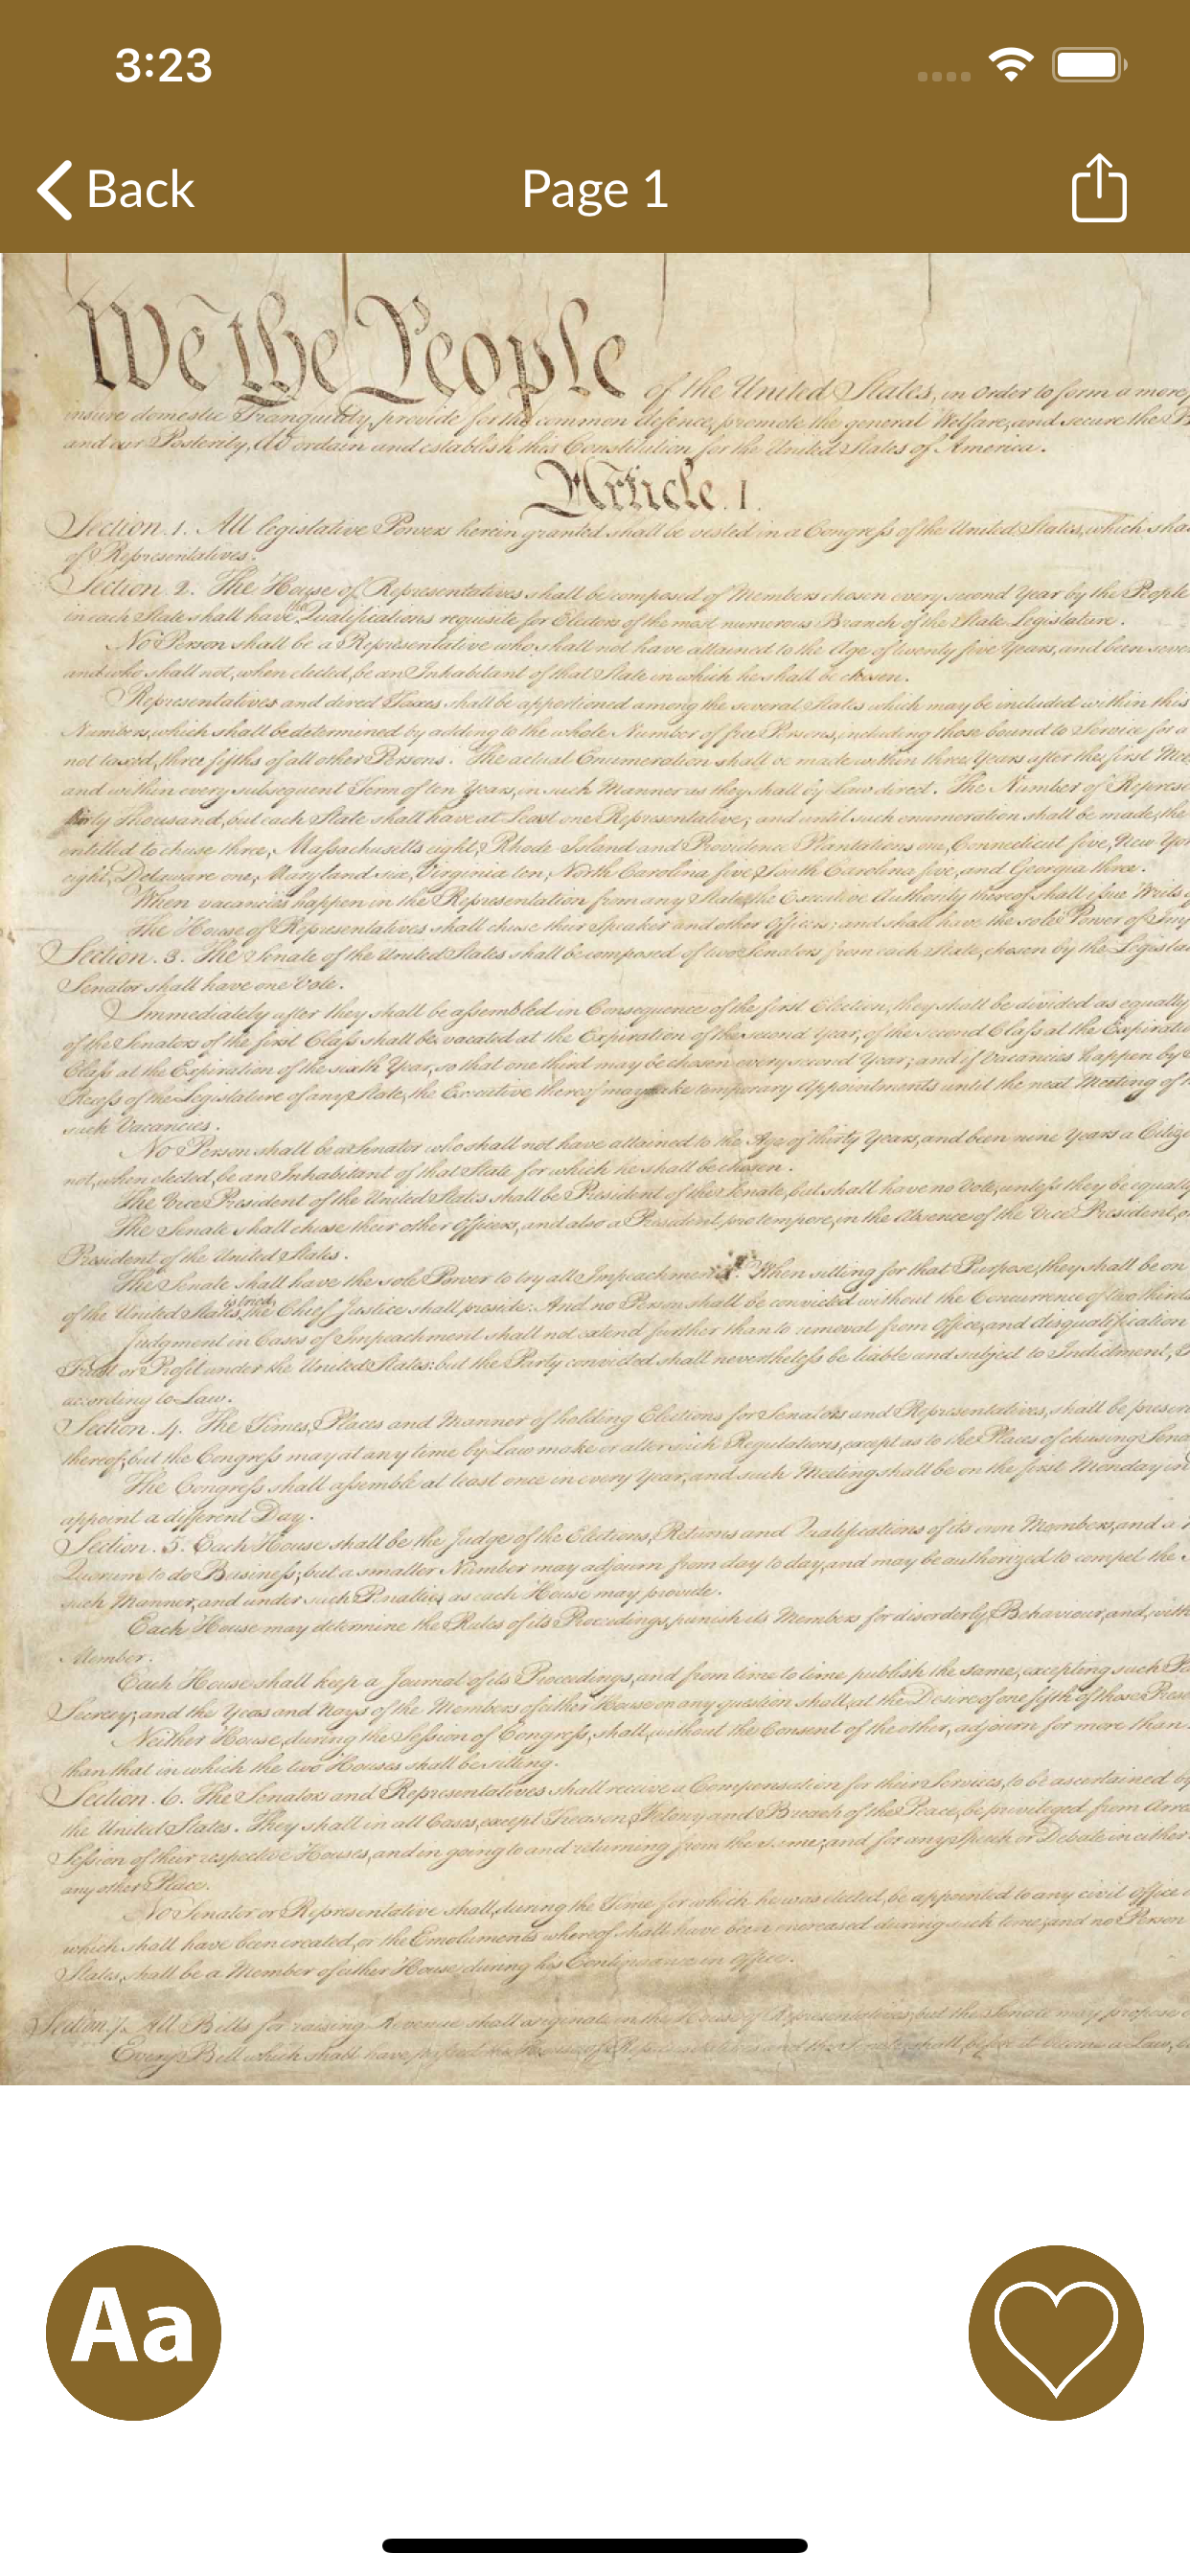 3:23
Back
Page 1
We the People of the United States, in Order to form a more
insure domestic Tranquility, provide for the common defence, promote the general Welfare, and secure the
and our Posterity, do ordain and establish this Constitution for the United States of America.
Article. I.
Section. 1. All legislative Powers herein granted shall be vested in a Congreſs of the United States, which sha
of Representatives.
Section. 2. The House of Representatives shall be composed of Members chosen every second Year by the People
in each State shall have the Qualifications requisite for Electors of the most numerous Branch of the State Legislature.
No Person shall be a Representative who shall not have attained to the Age of twenty five Years, and been seve
and who shall not, when elected, be an Inhabitant of that State in which he shall be chosen.
Representatives and direct Taxes shall be apportioned among the several States which may be included within this
Numbers, which shall be determined by adding to the whole Number of free Persons, including those bound to Service for a
not taxed, three fifths of all other Persons. The actual Enumeration shall be made within three Years after the first Mee
and within every subsequent Term of ten Years, in such Manner as they shall by Law direct. The Number of Represe
thirty Thousand, but each State shall have at Least one Representative; and until such enumeration shall be made, the
entitled to chuse three, Maſsachusetts eight, Rhode Island and Providence Plantations one, Connecticut five, New Yor
eight, Delaware one, Maryland six, Virginia ten, North Carolina five, South Carolina five, and Georgia three.
When vacancies happen in the Representation from any State, the Executive Authority thereof shall iſsue Writs
The House of Representatives shall chuse their Speaker and other Officers; and shall have the sole Power of Imp
Section. 3. The Senate of the United States shall be composed of two Senators from each State, chosen by the Legislat
Senator shall have one Vote.
Immediately after they shall be aſsembled in Consequence of the first Election, they shall be divided as equally
of the Senators of the first Claſs shall be vacated at the Expiration of the second Year, of the second Claſs at the Expiratio
Claſs at the Expiration of the sixth Year, so that one third may be chosen every second Year; and if Vacancies happen by
Receſs of the Legislature of any State, the Executive thereof may make temporary Appointments until the next Meeting of
such Vacancies.
No Person shall be a Senator who shall not have attained to the Age of thirty Years, and been nine Years a Citize
not, when elected, be an Inhabitant of that State for which he shall be chosen.
The Vice President of the United States shall be President of the Senate, but shall have no Vote, unleſs they be equally
The Senate shall chuse their other Officers, and also a President pro tempore, in the Absence of the Vice President, o
President of the United States.
The Senate shall have the sole Power to try all Impeachments. When sitting for that Purpose, they shall be on
of the United States is tried, the Chief Justice shall preside: And no Person shall be convicted without the Concurrence of two thirds
Judgment in Cases of Impeachment shall not extend further than to removal from Office, and disqualification
Trust or Profit under the United States: but the Party convicted shall nevertheleſs be liable and subject to Indictment,
according to Law.
Section. 4. The Times, Places and Manner of holding Elections for Senators and Representatives, shall be prescr
thereof; but the Congreſs may at any time by Law make or alter such Regulations, except as to the Places of chusing Sena
The Congreſs shall aſsemble at least once in every Year, and such Meeting shall be on the first Monday in
appoint a different Day.
Section. 5. Each House shall be the Judge of the Elections, Returns and Qualifications of its own Members, and a
Quorum to do Busineſs; but a smaller Number may adjourn from day to day, and may be authorized to compel the
such Manner, and under such Penalties as each House may provide.
Each House may determine the Rules of its Proceedings, punish its Members for disorderly Behaviour, and, with
Member.
Each House shall keep a Journal of its Proceedings, and from time to time publish the same, excepting such Pa
Secrecy; and the Yeas and Nays of the Members of either House on any question shall, at the Desire of one fifth of those Prese
Neither House, during the Seſsion of Congreſs, shall, without the Consent of the other, adjourn for more than
than that in which the two Houses shall be sitting.
Section. 6. The Senators and Representatives shall receive a Compensation for their Services, to be ascertained by
the United States. They shall in all Cases, except Treason, Felony and Breach of the Peace, be privileged from Arre
Seſsion of their respective Houses, and in going to and returning from the same; and for any Speech or Debate in either
any other Place.
No Senator or Representative shall, during the Time for which he was elected, be appointed to any civil Office
which shall have been created, or the Emoluments whereof shall have been encreased during such time; and no Person
States, shall be a Member of either House during his Continuance in Office.
Section. 7. All Bills for raising Revenue shall originate in the House of Representatives; but the Senate may propose
Every Bill which shall have paſsed the House of Representatives and the Senate, shall, before it become a Law,
Aa